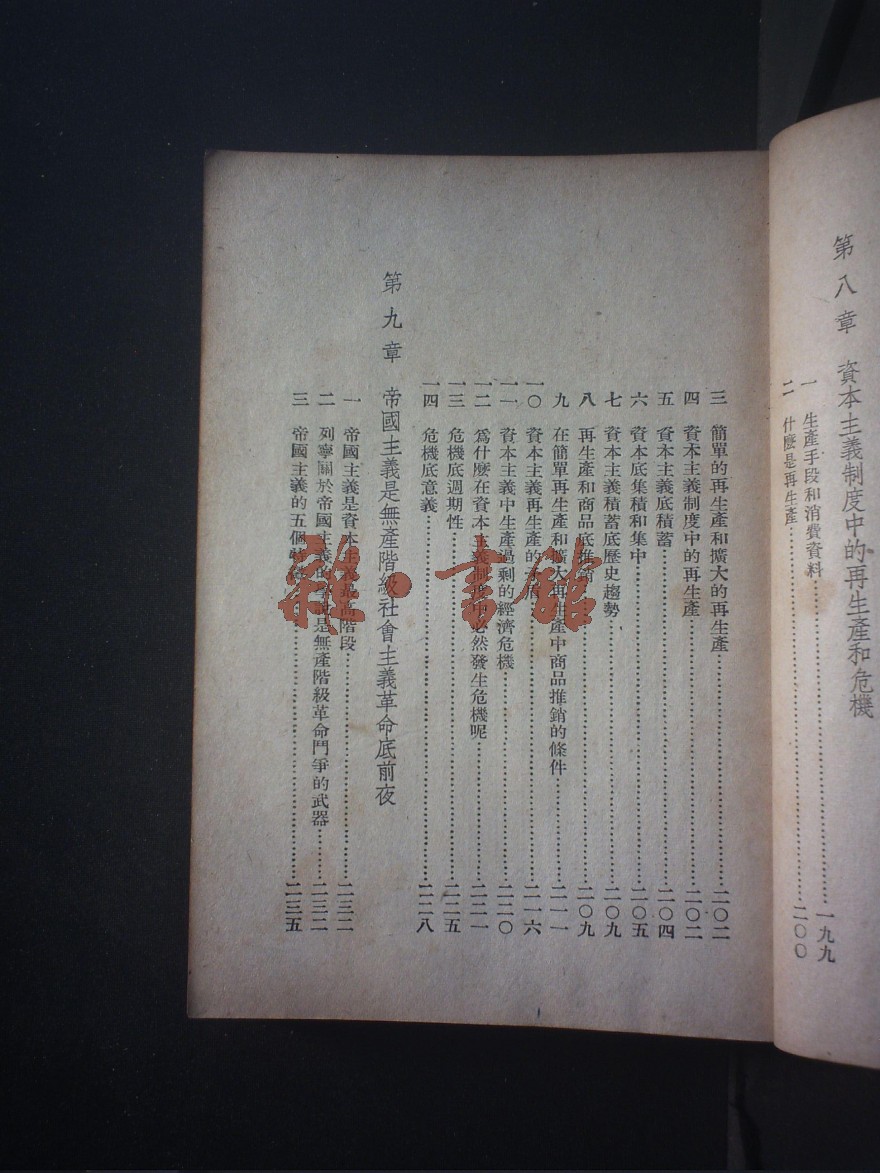 第八章 資本主義制度中的再生產和危機
一 生產手段和消費資料……一九九
二 什麼是再生產……二〇〇
三 簡單的再生產和擴大的再生產……二〇二
四 資本主義制度中的再生產……二〇二
五 資本主義底積蓄……二〇四
六 資本底集積和集中……二〇五
七 資本主義積蓄底歷史趨勢……二〇九
八 再生產和商品底推銷……二〇九
九 在簡單再生產和擴大再生產中商品推銷的條件……二一一
一〇 資本主義再生產的……二一六
一一 資本主義中生產過剩的經濟危機……二二〇
一二 爲什麼在資本主義制度中必然發生危機呢……二二一
一三 危機底週期性……二二五
一四 危機底意義……二二八
第九章 帝國主義是無產階級社會主義革命底前夜
一 帝國主義是資本主義最高階段……二三二
二 列寧關於帝國主義的學說是無產階級革命鬥爭的武器……二三二
三 帝國主義的五個特徵……二三五
雜·書館